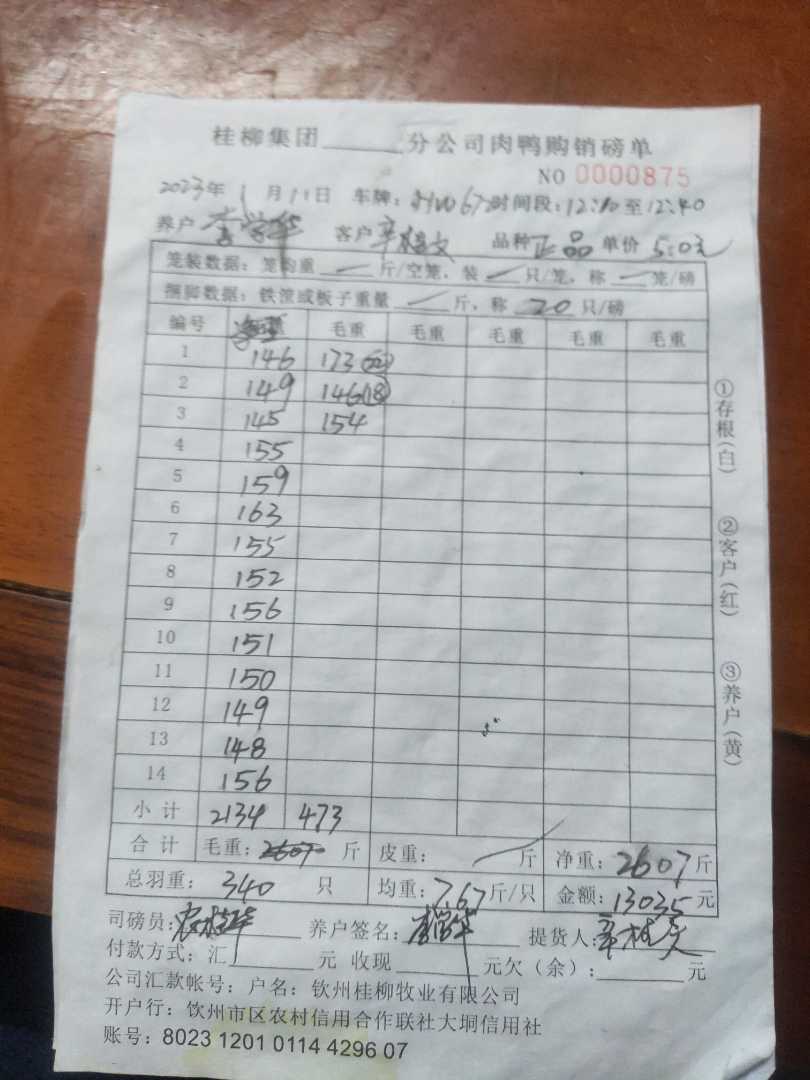 桂柳集团______分公司肉鸭购销磅单
NO 0000875
2023年 1 月 11 日 车牌: 时间段:12:10至12:40
养户 李学华 客户 品种 正品 单价 5.0元
笼装数据: 笼均重 — 斤/空笼、装 — 只/笼, 称 — 笼/磅
捆脚数据: 铁渣或板子重量 — 斤, 称 20 只/磅
编号 净重 毛重 毛重 毛重 毛重 毛重
1 146 173(22)
2 149 146(18)
3 145 154
4 155
5 159
6 163
7 155
8 152
9 156
10 151
11 150
12 149
13 148
14 156
小 计 2134 473
合 计 毛重: 2607 斤 皮重: 斤 净重: 2607 斤
总羽重: 340 只 均重: 7.67 斤/只 金额: 13035 元
司磅员: 养户签名: 李学华 提货人:
付款方式: 汇______元 收现______元欠(余):______元
公司汇款帐号: 户名: 钦州桂柳牧业有限公司
开户行: 钦州市区农村信用合作联社大垌信用社
账号: 8023 1201 0114 4296 07
①存根(白)
②客户(红)
③养户(黄)